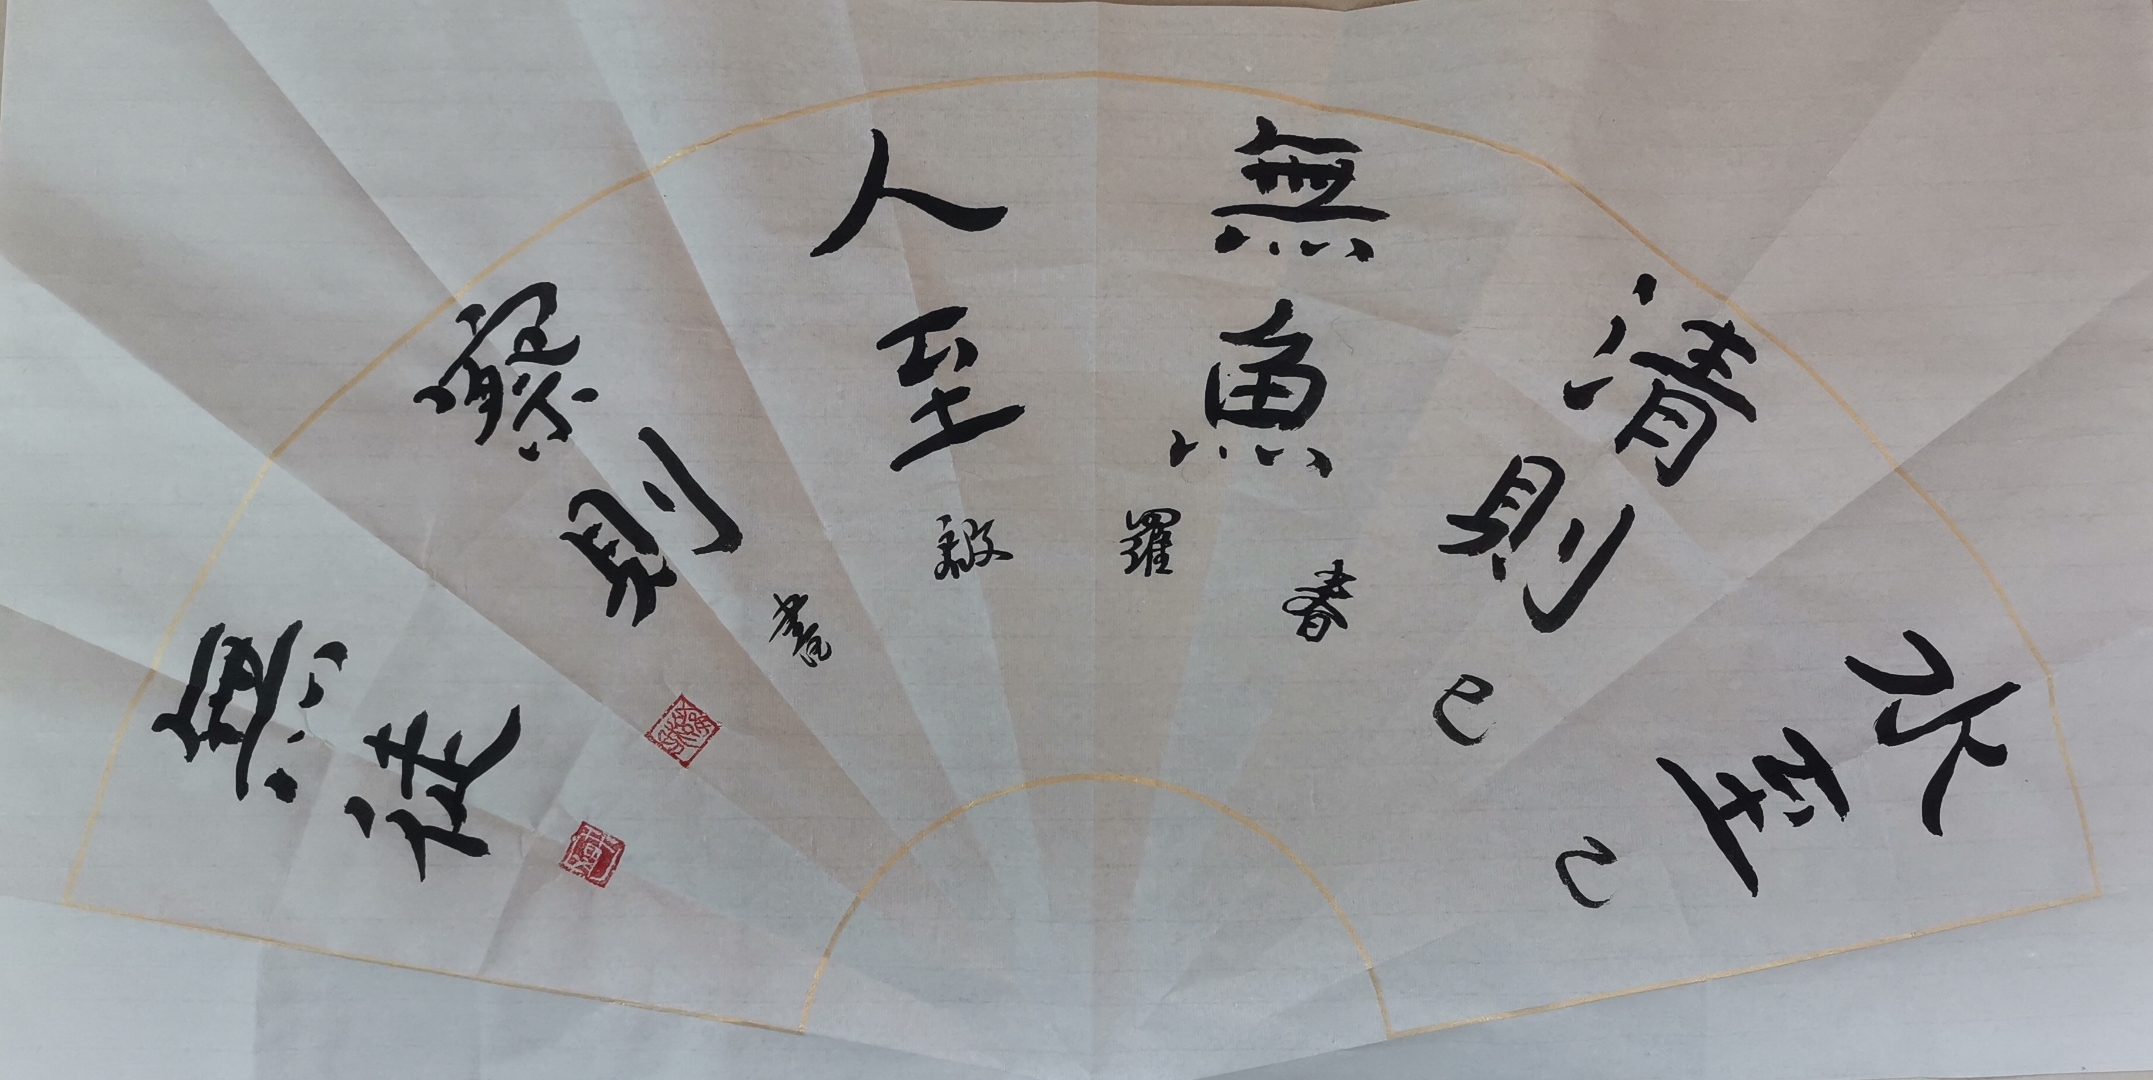 水至
清則
無魚
人至
察則
無徒
己巳春羅毅書